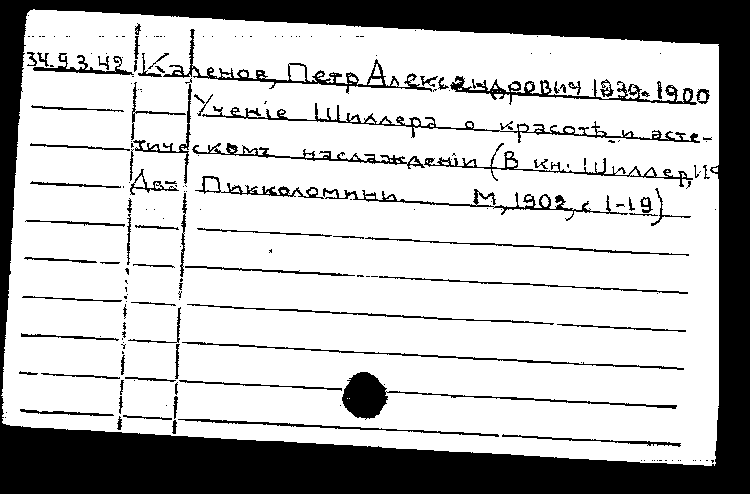 34.9.3.42 Каленов, Петр Александрович 1839-1900
Ученіе Шиллера о красотѣ и эсте-
тическомъ наслажденіи (В кн: Шиллер, И Ф
Два Пикколомини. М, 1902, с 1-19)